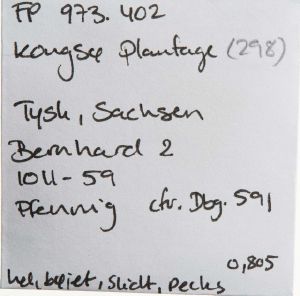 FP 973.402
Kongsø Plantage (298)
Tysk, Sachsen
Bernhard 2
1011-59
Pfennig cfr. Dbg. 591
0,805
hel, bøjet, slidt,